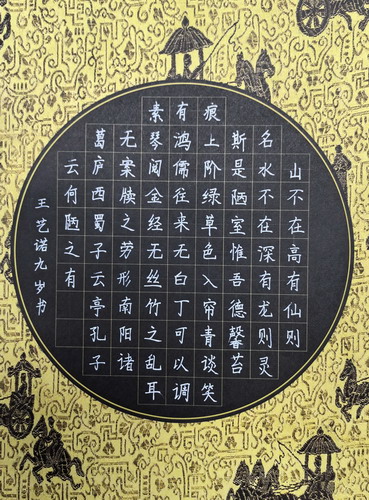 山不在高有仙则
名水不在深有龙则灵
斯是陋室惟吾德馨苔
痕上阶绿草色入帘青谈笑
有鸿儒往来无白丁可以调
素琴阅金经无丝竹之乱耳
无案牍之劳形南阳诸
葛庐西蜀子云亭孔子
云何陋之有
王艺诺九岁书